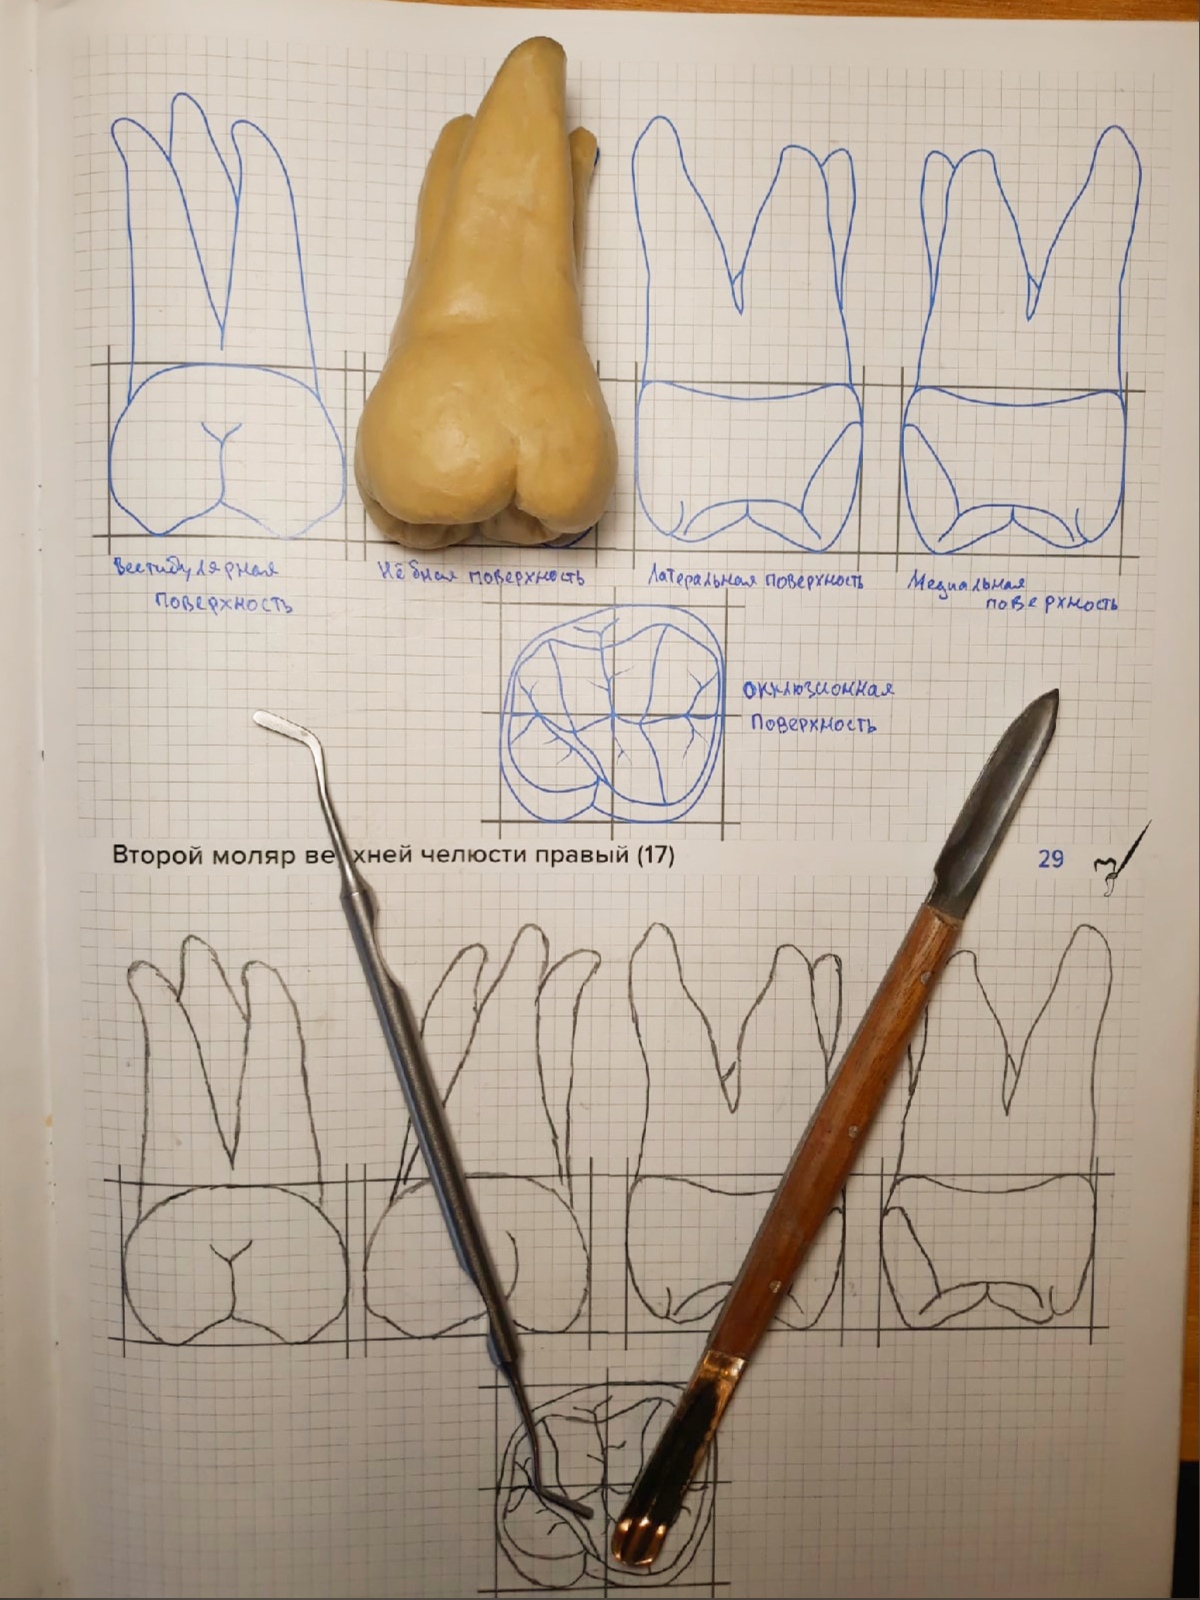 Вестибулярная
поверхность
Нёбная поверхность
Латеральная поверхность
Медиальная
поверхность
окклюзионная
поверхность
Второй моляр верхней челюсти правый (17)
29